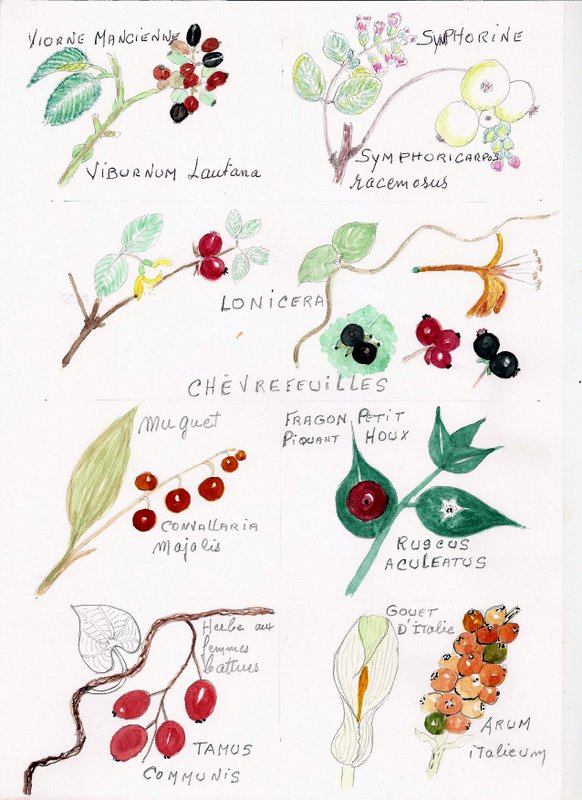 VIORNE MANCIENNE
VIBURNUM Lantana
SYMPHORINE
SYMPHORICARPOS
racemosus
LONICERA
CHÈVREFEUILLES
Muguet
CONVALLARIA
Majalis
FRAGON PETIT
PIQUANT HOUX
RUSCUS
ACULEATUS
Herbe aux
femmes
battues
TAMUS
COMMUNIS
GOUET
D'ITALIE
ARUM
iTALiCUM